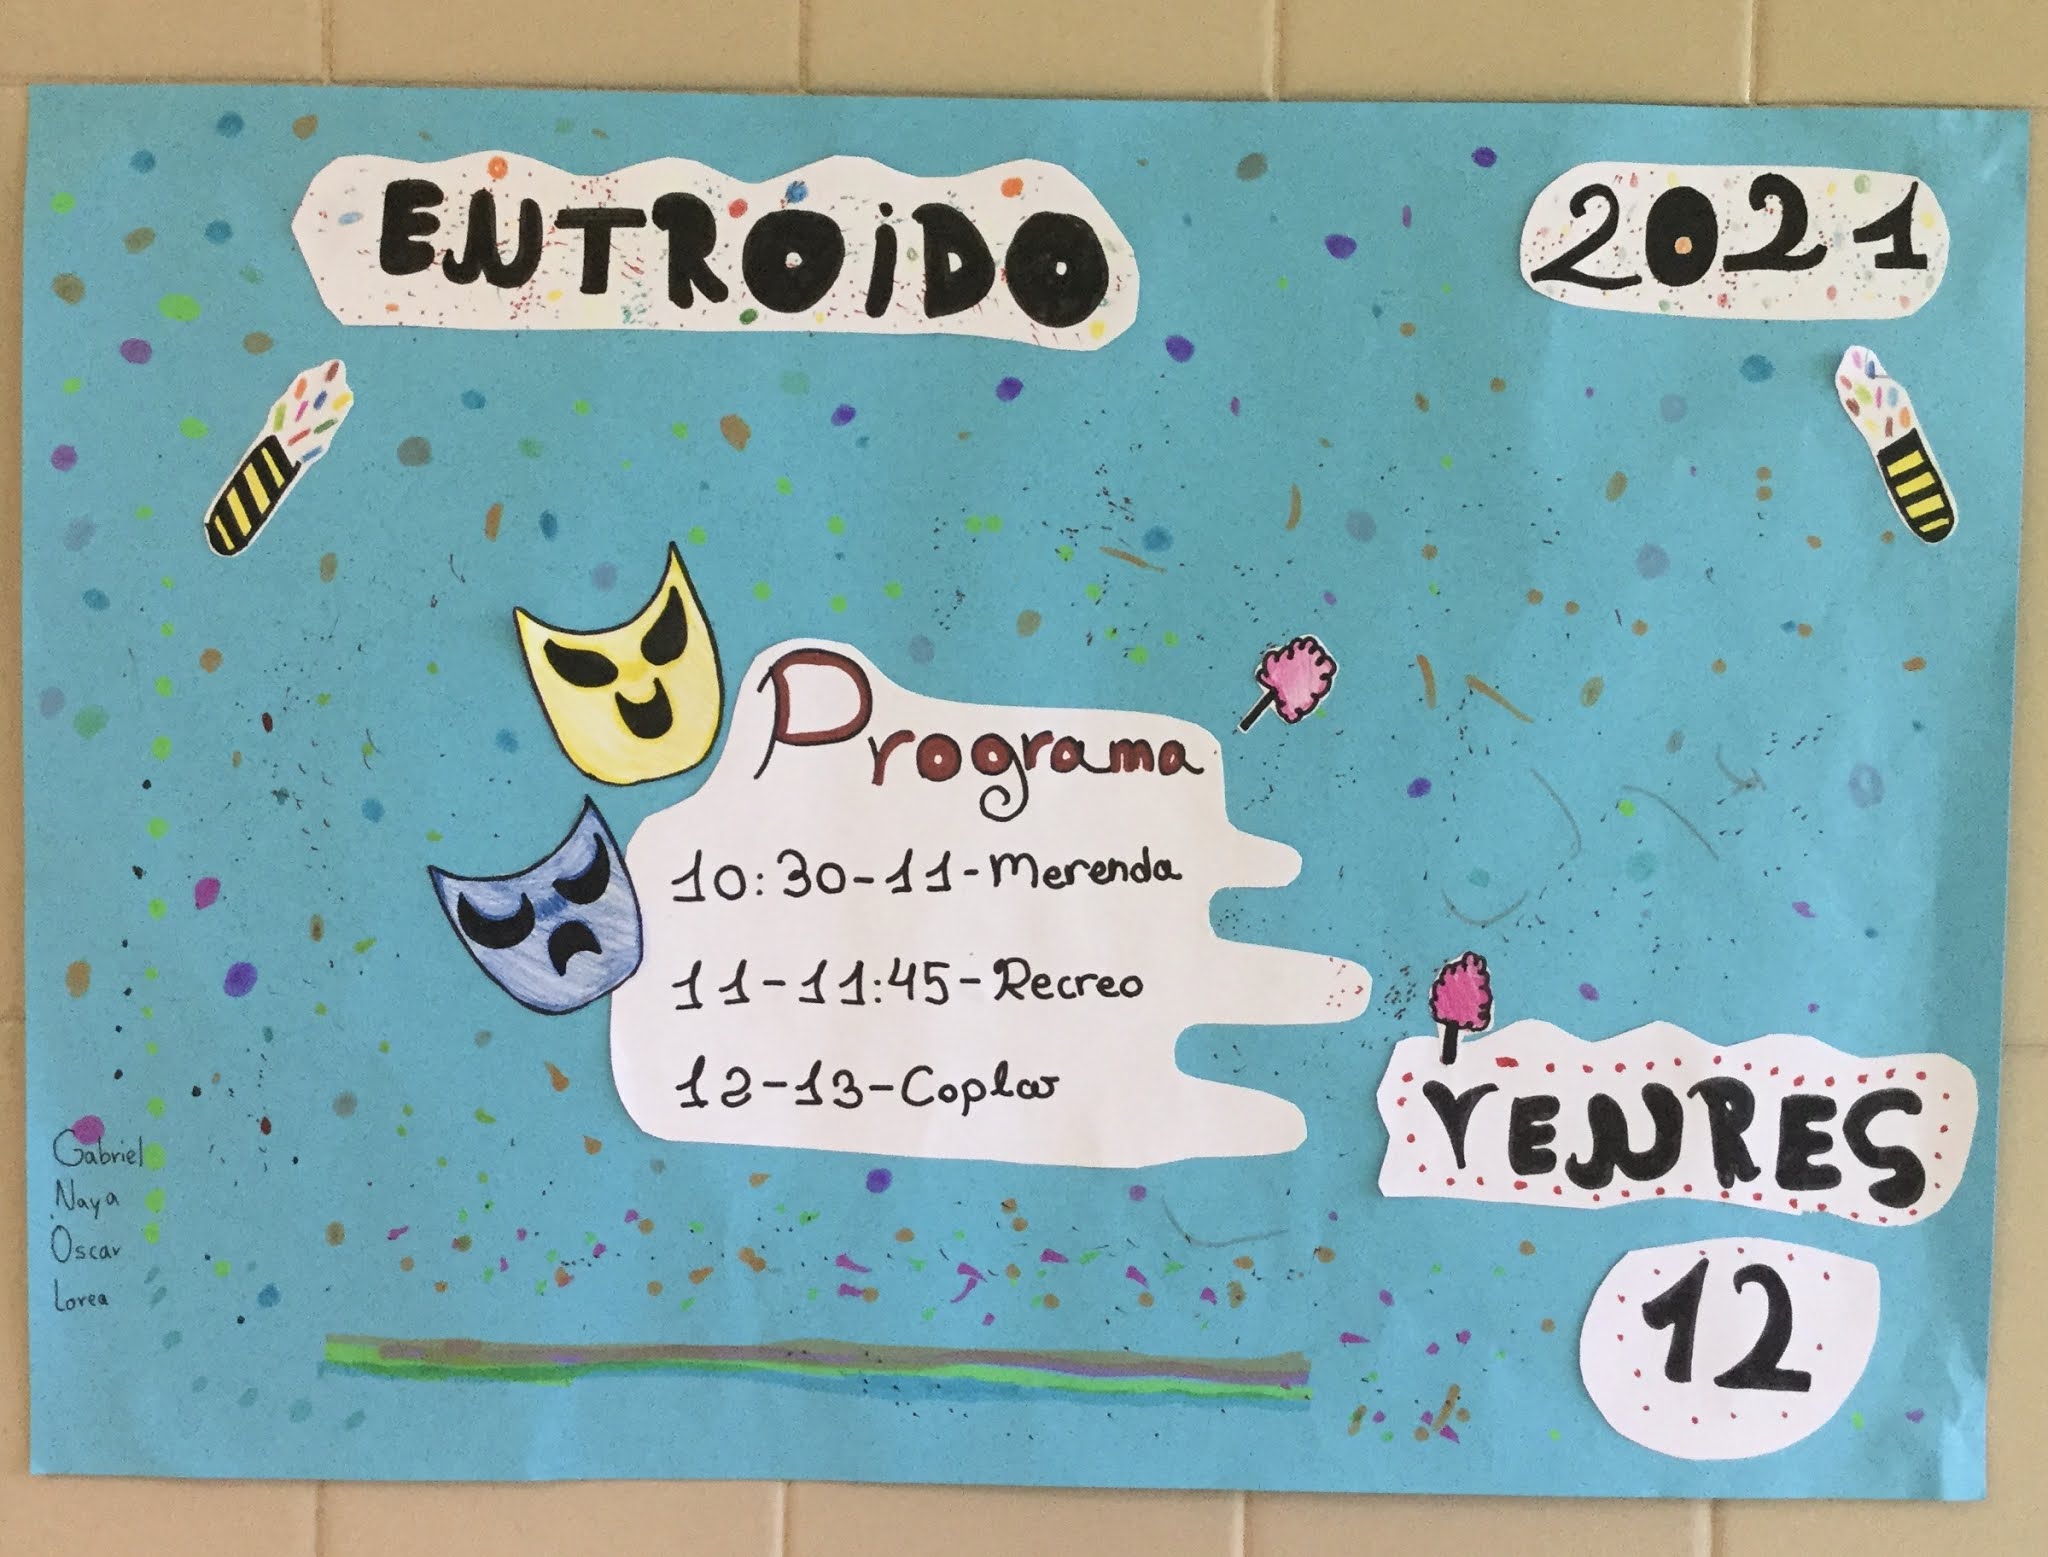 ENTROIDO
2021
Programa
10:30-11-Merenda
11-11:45-Recreo
12-13-Coplas
VENRES
12
Gabriel
Naya
Óscar
Lorea